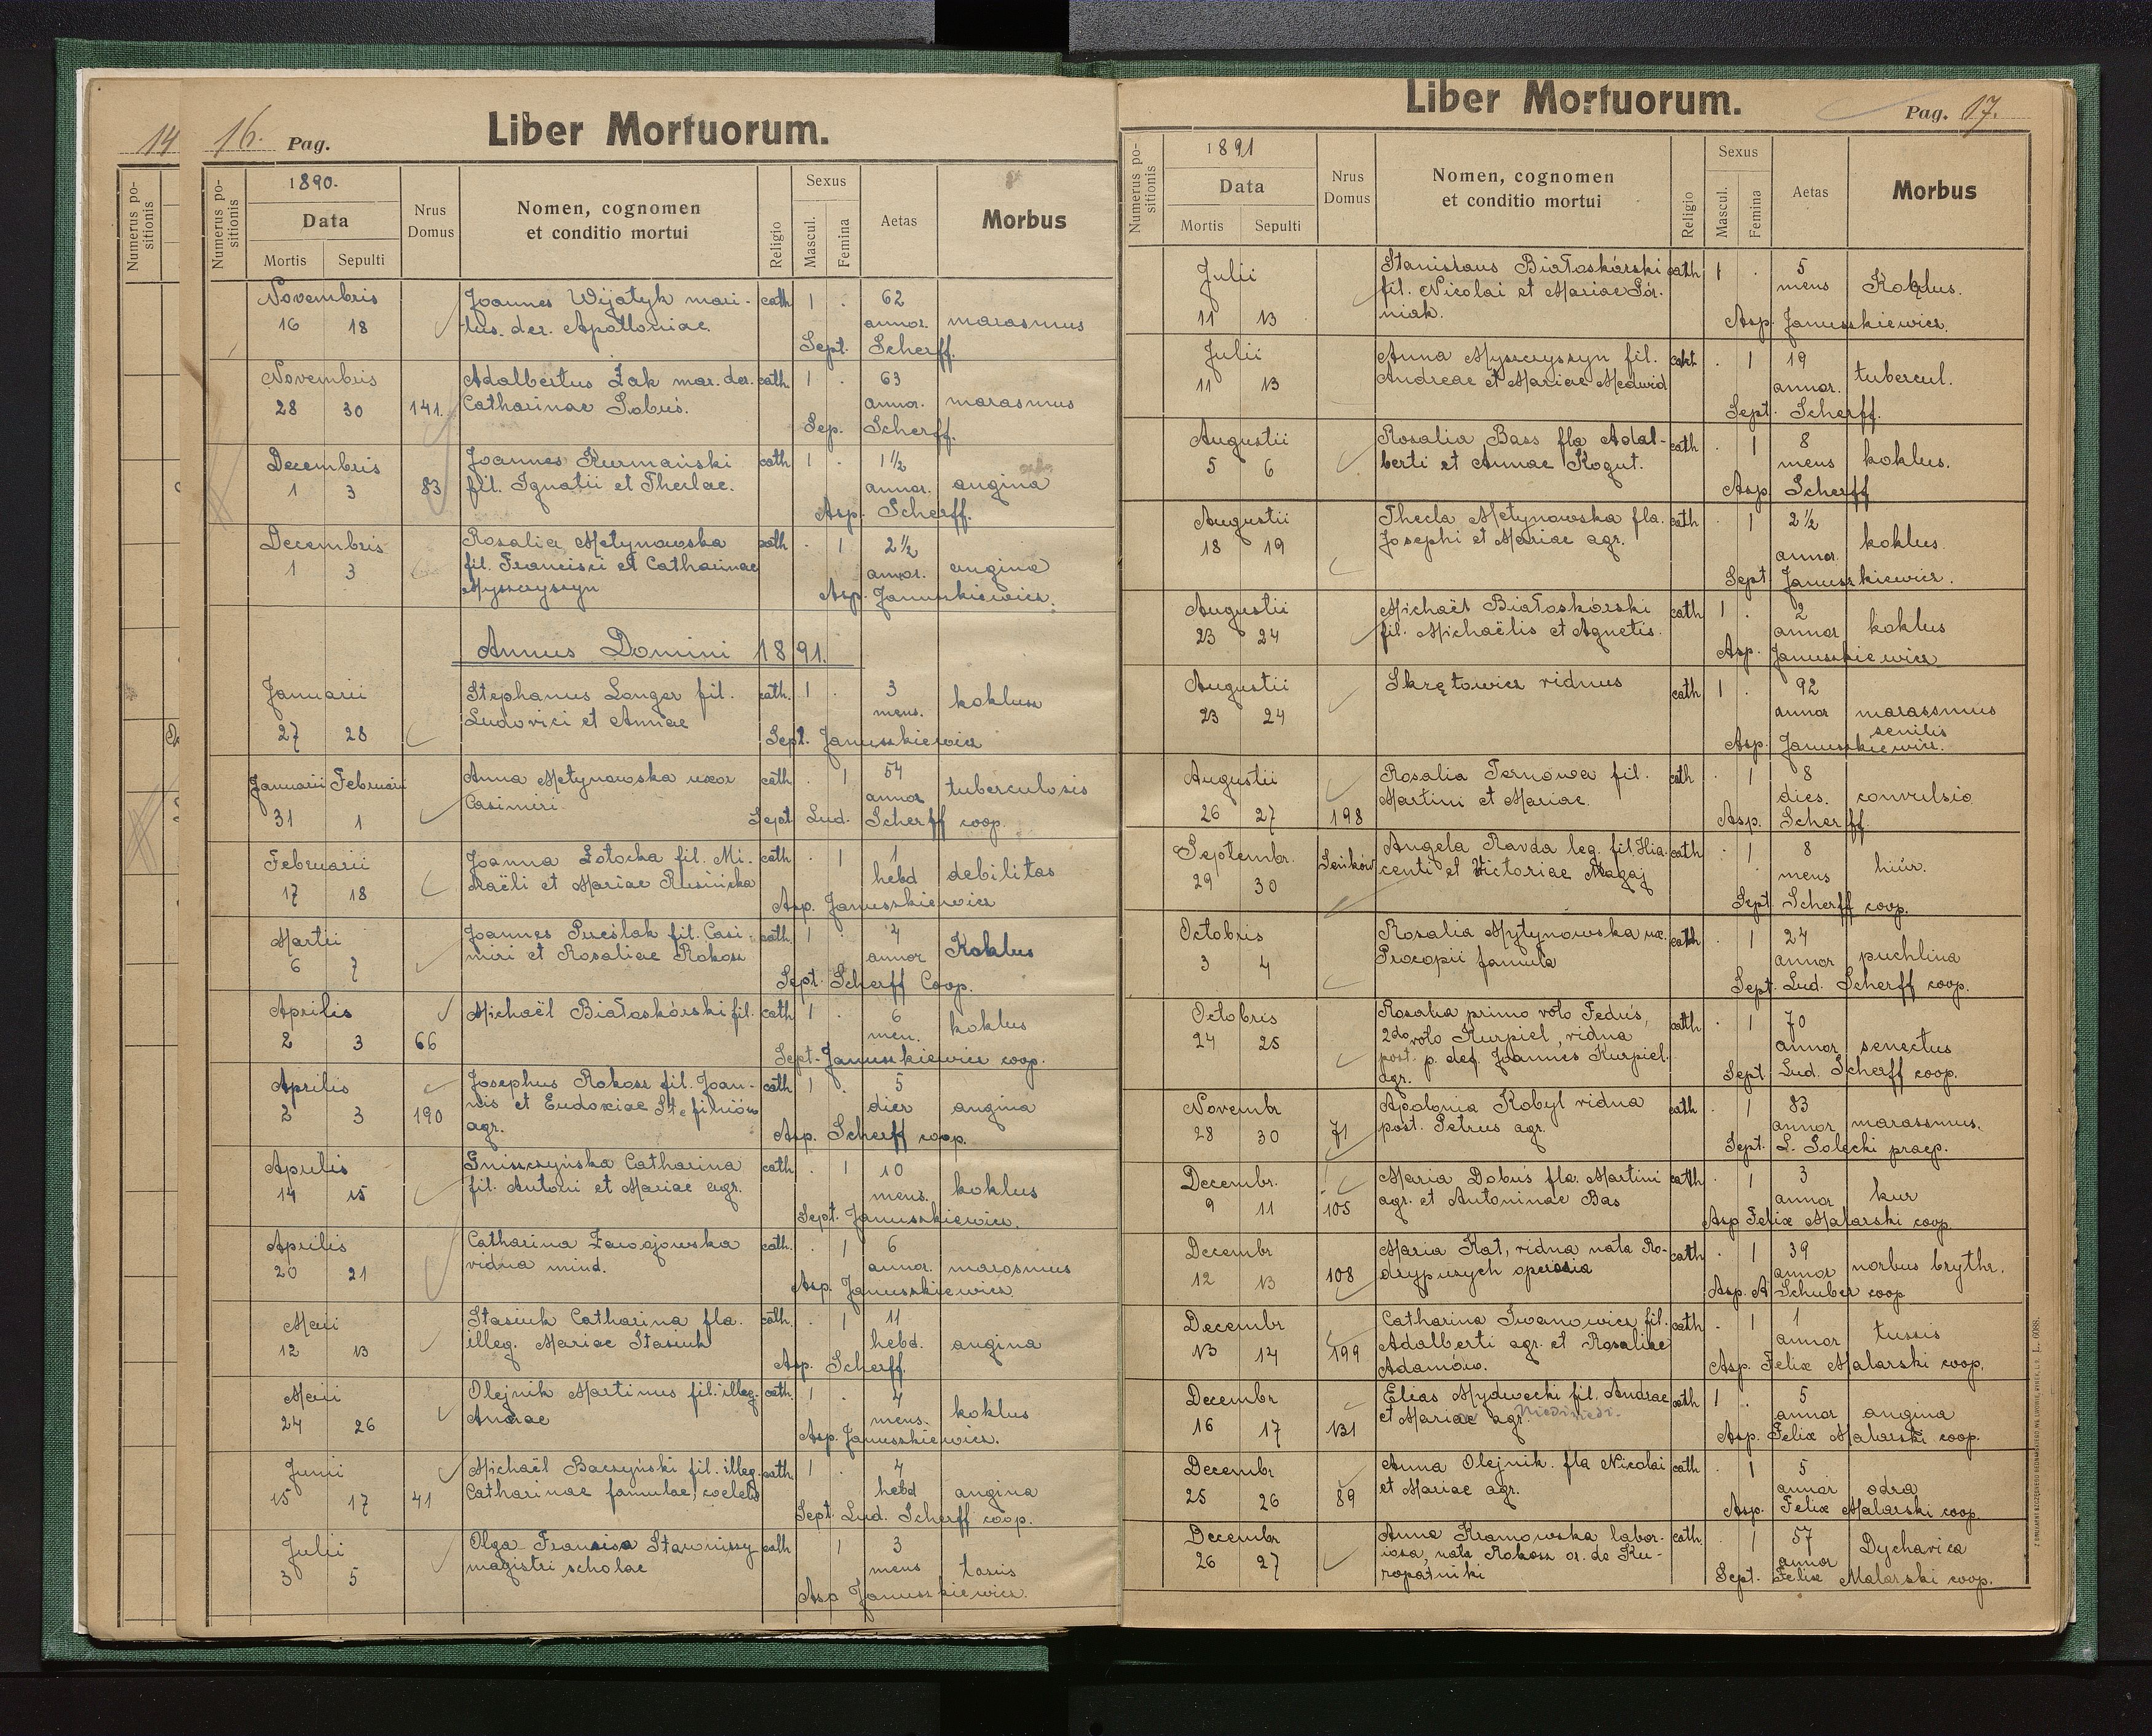 14
Numerus positionis
16. Pag.
Liber Mortuorum.
Numerus positionis
1890.
Data
Mortis Sepulti
Nrus Domus
Nomen, cognomen
et conditio mortui
Religio
Sexus
Mascul. Femina
Aetas
Morbus
Novembris Joannes Wijatyk mari- cath 1 . 62
16 18 tus. der. Apolloniae annor. marasmus
Sept. Scherff.
Novembris Adalbertus Żak mar. der. cath. 1 . 63
28 30 141. Catharinae Sobuś. annor. marasmus
Sep. Scherff.
Decembris Joannes Kurmański cath 1 . 1½
1 3 83 fil. Ignatii et Theclae. annor. angina
Asp. Scherff.
Decembris Rosalia Metynowska cath . 1 2½
1 3 fil. Francisci et Catharinae annor. angina
Myszczyszyn Asp. Januszkiewicz.
Annus Domini 1891.
Januarii Stephanus Longer fil. cath. 1 . 3 koklusz
27 28 Ludovici et Annae mens.
Sept. Januszkiewicz
Januarii Februarii Anna Metynowska uxor cath . 1 54 tuberculosis
31 1 Casimiri annor
Sept Lud. Scherff coop.
Februarii Joanna Łotocka fil. Mi- cath . 1 1
17 18 chaëli et Mariae Rusinicka hebd debilitas
Asp. Januszkiewicz
Martii Joannes Pueślak fil. Casi- cath. 1 . 4 Koklus
6 7 miri et Rosaliae Rokosz annor
Sept. Scherff Coop.
Aprilis Michaël Białoskórski fil. cath 1 . 6 koklus
2 3 66 men.
Sept. Januszkiewicz coop.
Aprilis Josephus Rokosz fil. Joan- cath 1 . 5
2 3 190 nis et Eudoxiae Stefiniów dier angina
agr. Asp. Scherff coop.
Aprilis Gniszczyńska Catharina cath . 1 10
14 15 fil. Antoni et Mariae agr. mens. koklus
Sept. Januszkiewicz.
Aprilis Catharina Zawojowska cath. . 1 6
20 21 vidua mind. annor. marasmus
Asp. Januszkiewicz
Maii Stasiuk Catharina fla. cath. . 1 11
12 13 illeg. Mariae Stasiuk hebd. angina
Asp. Scherff.
Maii Olejnik Martinus fil. illeg. cath. 1 . 4
24 26 Andrae mens. koklus
Asp. Januszkiewicz.
Junii Michaël Baczyński fil. illeg. cath. 1 . 4
15 17 41 Catharinae famulae, coelebs hebd angina
Sept. Lud. Scherff coop.
Julii Olga Francisca Stawniszy cath 1 3
3 5 magistri scholae mens tasiis
Asp Januszkiewicz.
Liber Mortuorum.
Pag. 17.
Numerus positionis
1891
Data
Mortis Sepulti
Nrus Domus
Nomen, cognomen
et conditio mortui
Religio
Sexus
Mascul. Femina
Aetas
Morbus
Julii Stanislaus Białoskórski cath 1 . 5 Koklus.
11 13 fil. Nicolai et Mariae Gór- mens
niak. Asp. Januszkiewicz.
Julii Anna Myszczyszyn fil. . 1 19 tubercul.
11 13 Andreae et Mariae Medwid annor.
Sept. Scherff.
Augustii Rosalia Bass fla Adal- cath . 1 8
5 6 berti et Annae Kogut. mens koklus.
Asp Scherff
Augustii Thecla Metynowska fla. cath . 1 2½ koklus.
18 19 Josephi et Mariae agr. annor.
Sept Januszkiewicz.
Augustii Michaël Białoskórski cath 1 . 2
23 24 fil. Michaëlis et Agnetis. annor koklus
Asp. Januszkiewicz
Augustii Skrętowicz viduus cath 1 . 92
23 24 annor marassmus
senilis
Asp. Januszkiewicz.
Augustii Rosalia Ternowa fil. cath . 1 8
26 27 198 Martini et Mariae. dies. convulsio
Asp. Scherff
Septembr. Seńków Angela Ravda leg. fil. Hia- cath . 1 8
29 30 centi et Victoriae Magaj mens
Sept. Scherff coop.
Octobris Rosalia Mytynowska ux. cath . 1 24
3 4 Procopii famula annor puchlina
Sept. Lud. Scherff coop.
Octobris Rosalia primo voto Feduś, cath . 1 70
24 25 2do voto Kurpiel, vidua annor senectus
post. p. def. Joannes Kurpiel. Sept. Lud. Scherff coop.
agr.
Novembr Apolonia Kobyl vidua cath . 1 83
28 30 71 post. Petrus agr. annor marassmus.
Sept. L. Solecki praep.
Decembr. Maria Dobuś fla. Martini cath . 1 3
9 11 105 agr. et Antoninae Bas annor kur
Asp Felix Malarski coop
Decembr Maria Kat, vidua nata Ro- cath . 1 39
12 13 108 drypuzych operaria annor norbus brythr.
Asp. A Schuber coop
Decembr Catharina Iwanowicz fil. cath . 1 1
13 14 199 Adalberti agr. et Rosaliae annor tussis
Adamów. Asp. Felix Malarski coop.
Decembr Elias Mydwecki fil. Andrae cath 1 . 5
16 17 131 et Mariae agr. annor angina
Asp. Felix Malarski coop.
Decembr Anna Olejnik. fla Nicolai cath . 1 5
25 26 89 et Mariae agr. annor odra
Asp. Felix Malarski coop
Decembr Anna Kramowska labor- cath. . 1 57 Dycharica
26 27 iosa, nata Rokosz or. de Ku- annor
ropatniki Sept. Felix Malarski coop.